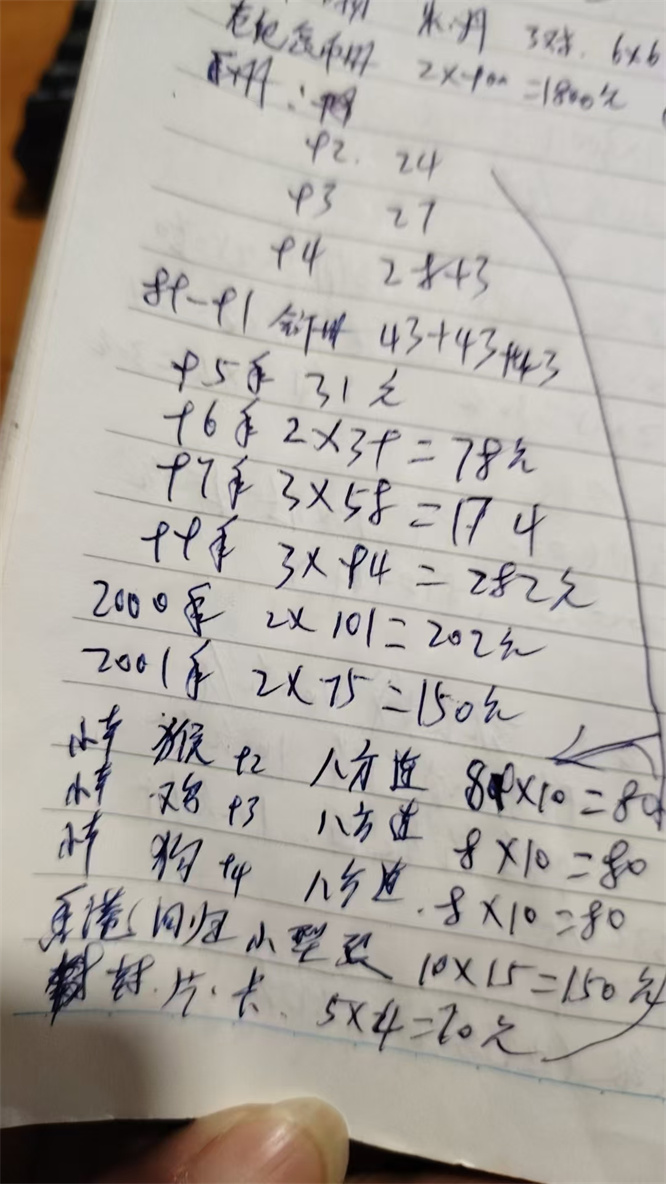 3×6 6×6
2×900=1800元
年册：
92. 24
93 27
94 28+3
89-91 合订册 43+43+43
95年 31元
96年 2×39=78元
97年 3×58=174
99年 3×94=282元
2000年 2×101=202元
2001年 2×75=150元
小本 猴 92 八方连 8×10=80
小本 鸡 93 八方连 8×10=80
小本 狗 94 八方连.8×10=80
香港回归小型张 10×15=150元
封.片.卡. 5×4=20元